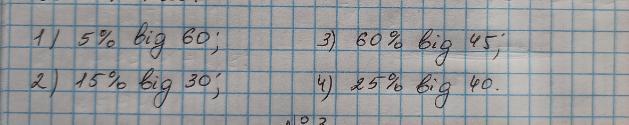 1) 5% від 60; 3) 60% від 45;
2) 15% від 30; 4) 25% від 40.